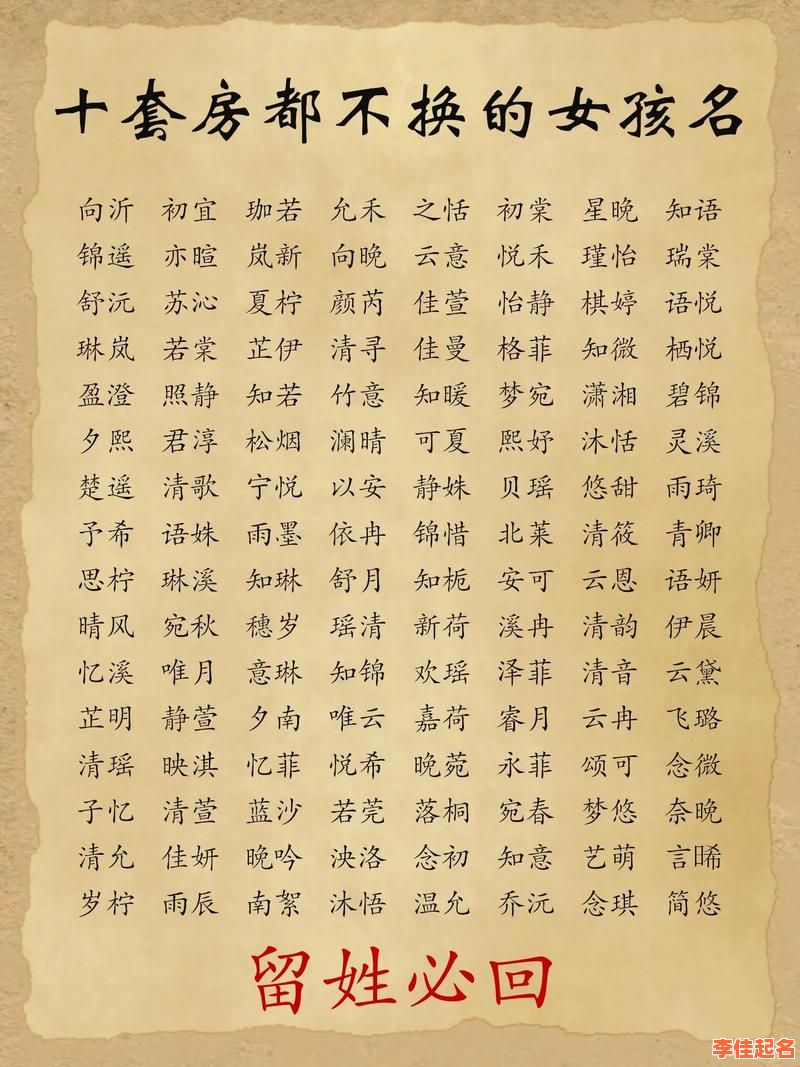 十套房都不换的女孩名
向沂 初宜 珈若 允禾 之恬 初棠 星晚 知语
锦遥 亦暄 岚新 向晚 云意 悦禾 瑾怡 瑞棠
舒沅 苏沁 夏柠 颜芮 佳萱 怡静 棋婷 语悦
琳岚 若棠 芷伊 清寻 佳曼 格菲 知微 栖悦
盈澄 照静 知若 竹意 知暖 梦宛 潇湘 碧锦
夕熙 君淳 松烟 澜晴 可夏 熙妤 沐恬 灵溪
楚遥 清歌 宁悦 以安 静姝 贝瑶 悠甜 雨琦
予希 语姝 雨墨 依冉 锦惜 北莱 清筱 青卿
思柠 琳溪 知琳 舒月 知栀 安可 云恩 语妍
晴风 宛秋 穗岁 瑶清 新荷 溪冉 清韵 伊晨
忆溪 唯月 意琳 知锦 欢瑶 泽菲 清音 云黛
芷明 静萱 夕南 唯云 嘉荷 睿月 云冉 飞璐
清瑶 映淇 忆菲 悦希 晚菀 永菲 颂可 念微
子忆 清萱 蓝沙 若莞 落桐 宛春 梦悠 奈晚
清允 佳妍 晚吟 泱洛 念初 知意 艺萌 言晞
岁柠 雨辰 南絮 沐悟 温允 乔沅 念琪 简悠
留姓必回
李佳起名